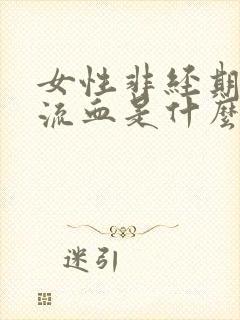 女性非经期
流血是什麼
迷引